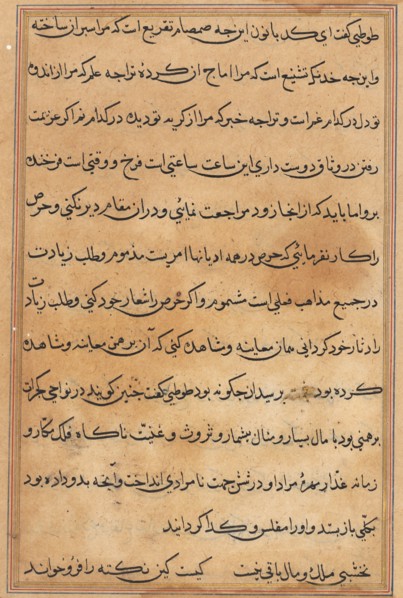 طوطی گفت ای کدبانون این چه صمصام تقریع است که مرا سپر از ساخته
و این چه خدنگ تشنیع است که مرا اماج از کرده تو اجه علم که مرا از اندوه
تو دل در کدام غمرات و تو اجه خبر که مرا از کربه تو دیک در کدام نفرا کر عزیمت
رفتن در وثاق دوست داری این ساعت ساعتی است فرخ و وقتی است فرخنده
برو اما باید که از انجا زود مراجعت نمائی و دران مقام دیر نکنی و حرص
را کار نفرمائی که حرص در همه ادیانها امریست مذموم و طلب زیادت
در جمیع مذاهب فعلی است شموم و اکر حرص را شعار خود کنی و طلب زیادت
را دثار خود کردانی همان معاینه و مشاهده کنی که آن برهمن معاینه و مشاهده
کرده بود پرسیدان چکونه بود طوطی کفت چنین کویند در نواحی کجرات
برهمنی بود با مال بسیار و منال بیشمار و ثروت و غنیت ناکاه فلک مکار و
زمانه غدار مهره مراد او در شش جهت نامرادی انداخت و آنچه بدو داده بود
بکلی باز بستد و او را مفلس و کدا کردانید
نخشبی ملک و مال باقی نیست کیست کین نکته را فرو خواند